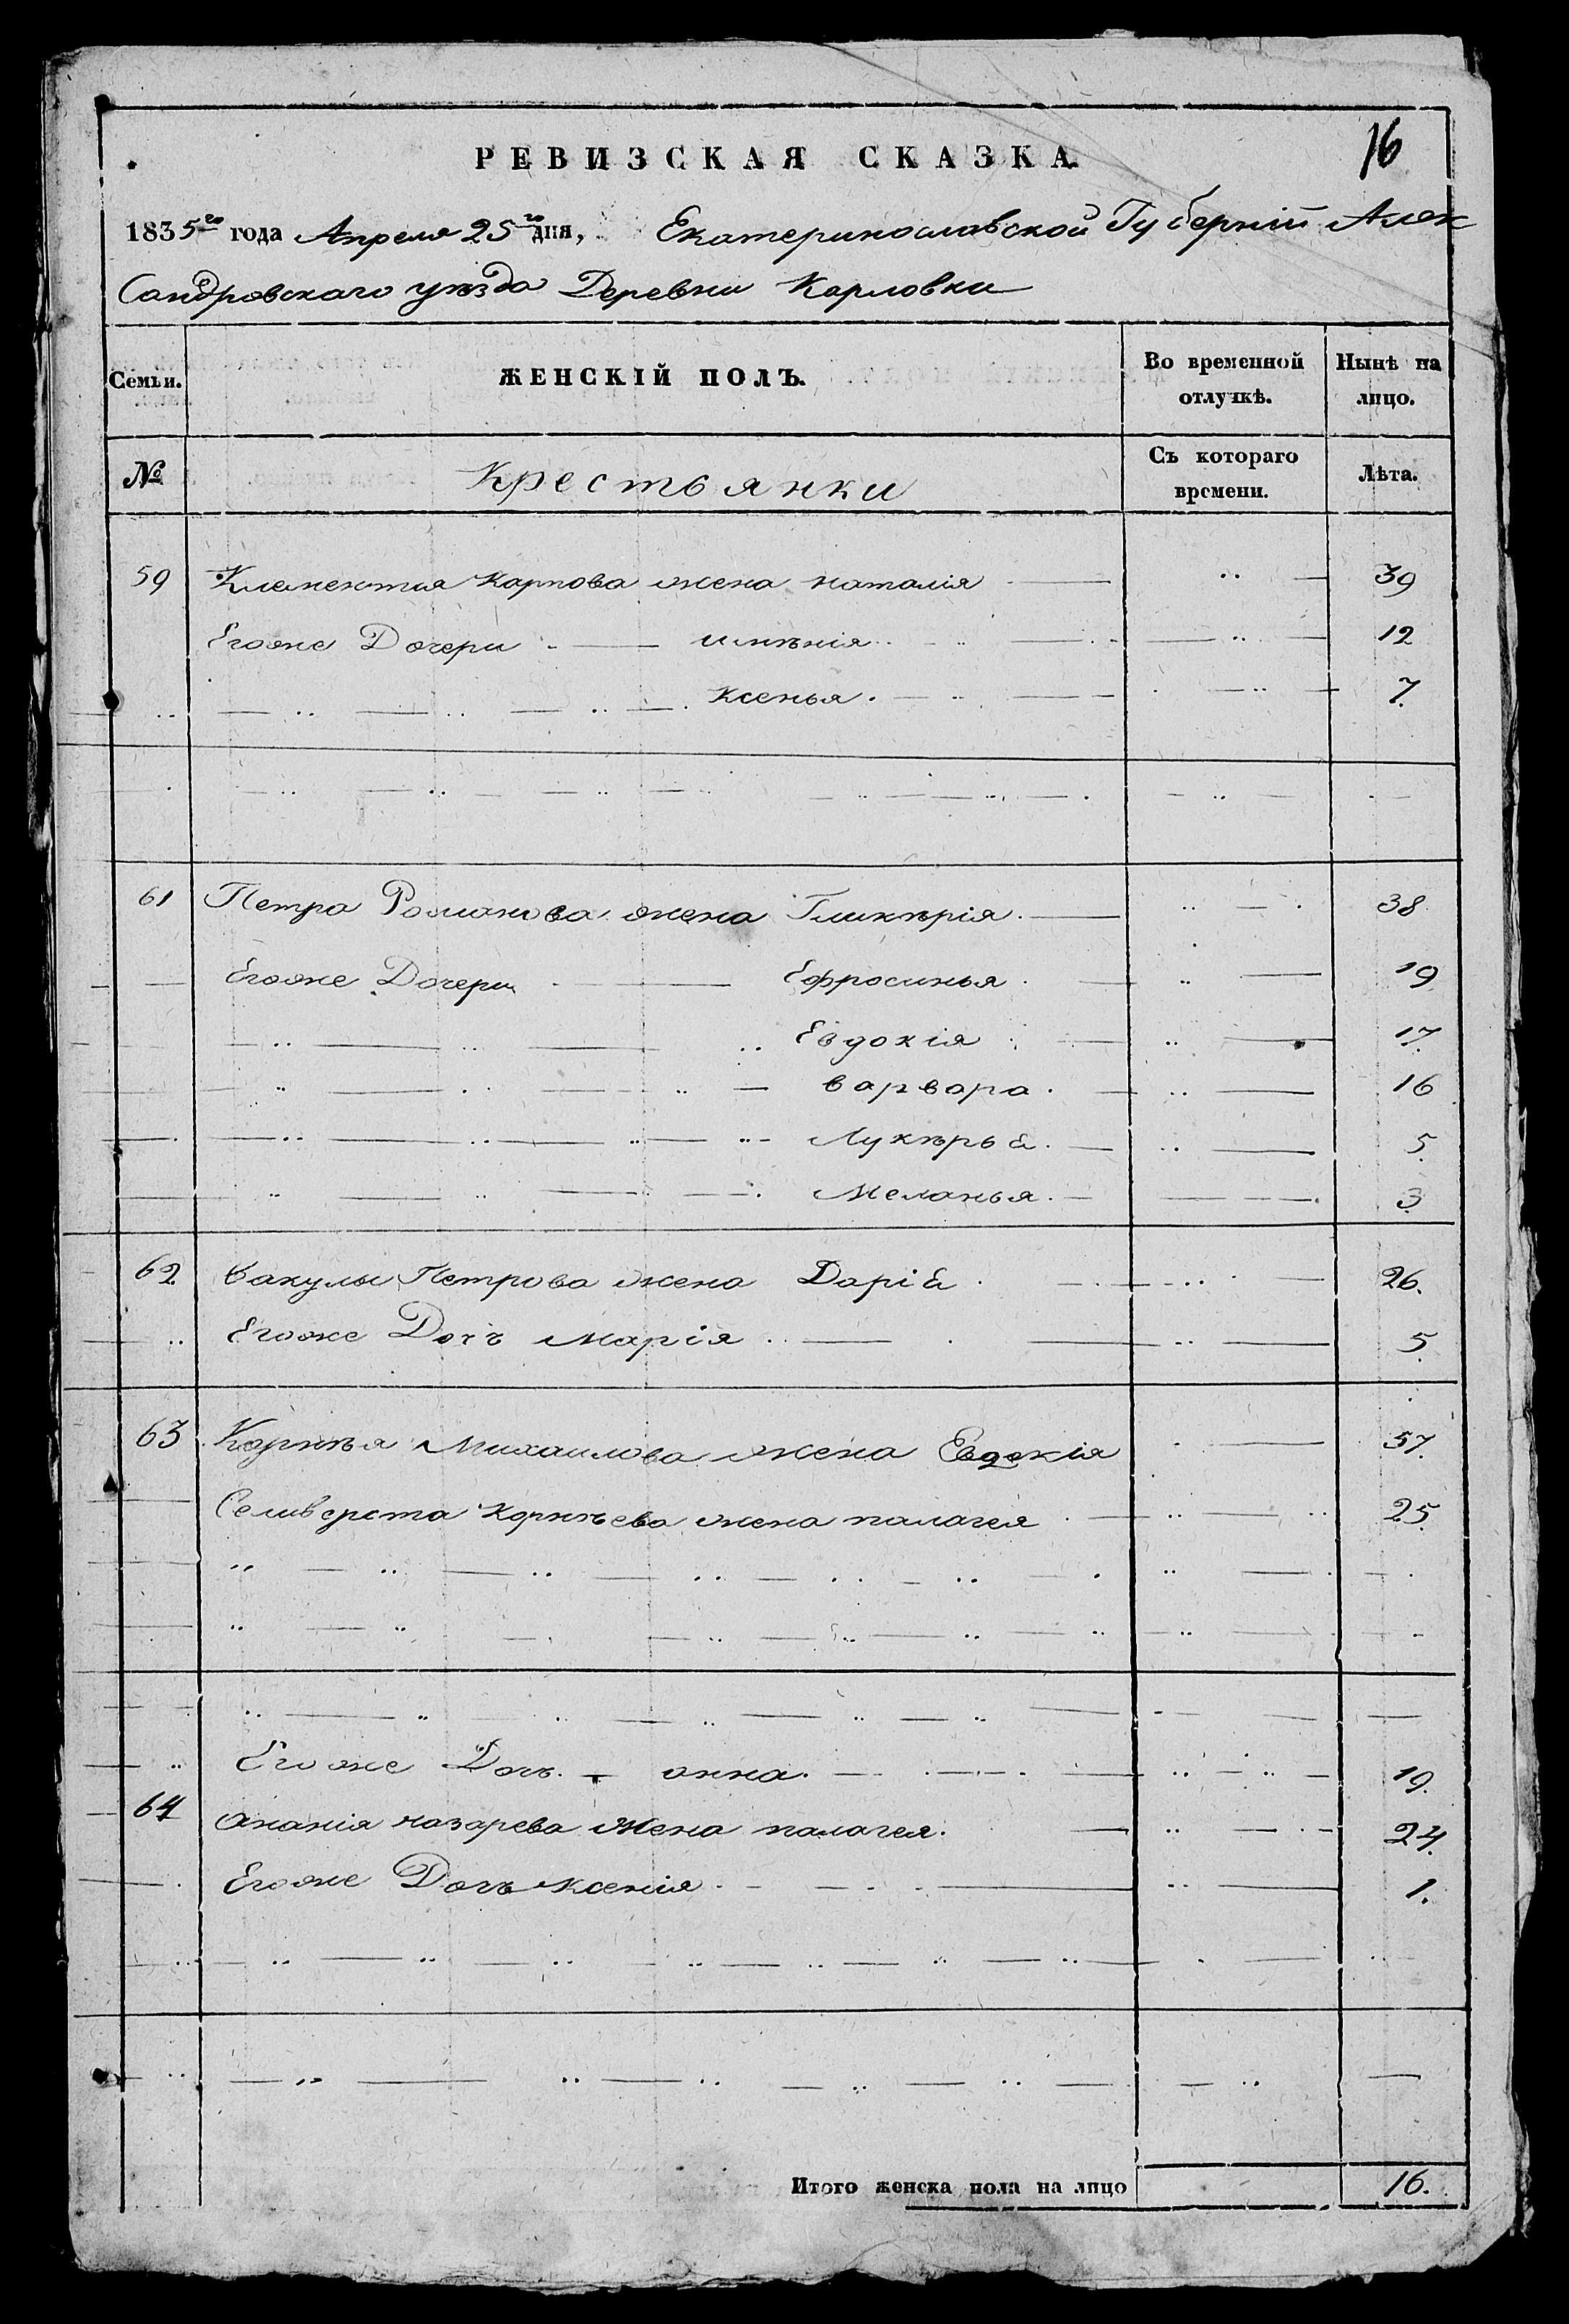 16
РЕВИЗСКАЯ СКАЗКА.
1835го года Апреля 25го дня, Екатеринославской Губерній Алек
Сандровскаго уѣзда Деревни Карловки
Семьи. ЖЕНСКІЙ ПОЛЪ. Во временной отлучкѣ. Нынѣ на лицо.
№ Крестьянки Съ котораго времени. Лѣта.
59 Клементия Карпова жена наталія 39
Егоже Дочери 12
Ксенья. 7.
61 Петра Романова жена Гликѣрія. 38
Егоже Дочери Ефросинья 19
Евдокія 17.
варвара. 16
Лукѣрья. 5.
Меланья. 3
62 вакулы Петрова жена Дарія 26.
Егоже Дочь марія 5.
63 Корнѣя Михаилова жена Евдокія 57.
Селиверста Корнѣева жена палагея 25.
Егоже Дочь. анна. 19.
64 ананія назарева жена палагея. 24.
Егоже Дочь Ксенія 1.
Итого женска пола на лицо 16.